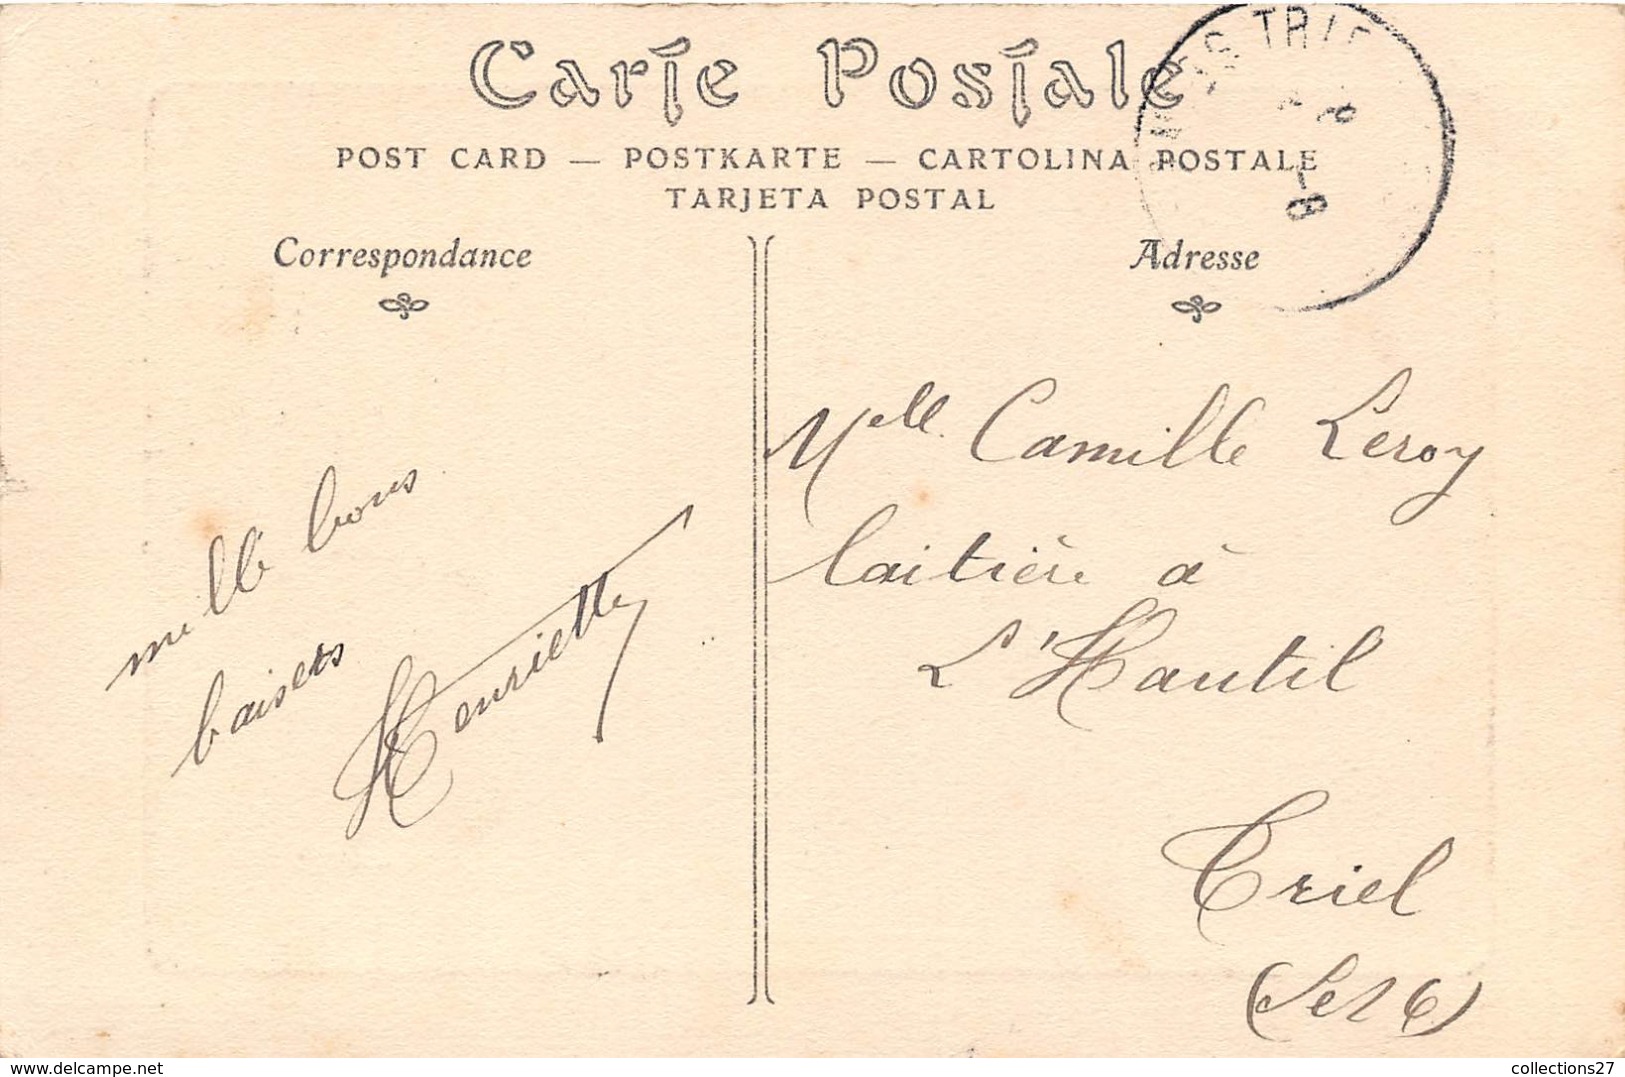 Carte Postale
POST CARD — POSTKARTE — CARTOLINA POSTALE
TARJETA POSTAL
Correspondance
Adresse
mille bons
baisers
Henriette
Melle Camille Leroy
laitière à
L'Hautil
Triel
(Set O)
www.delcampe.net
collections27